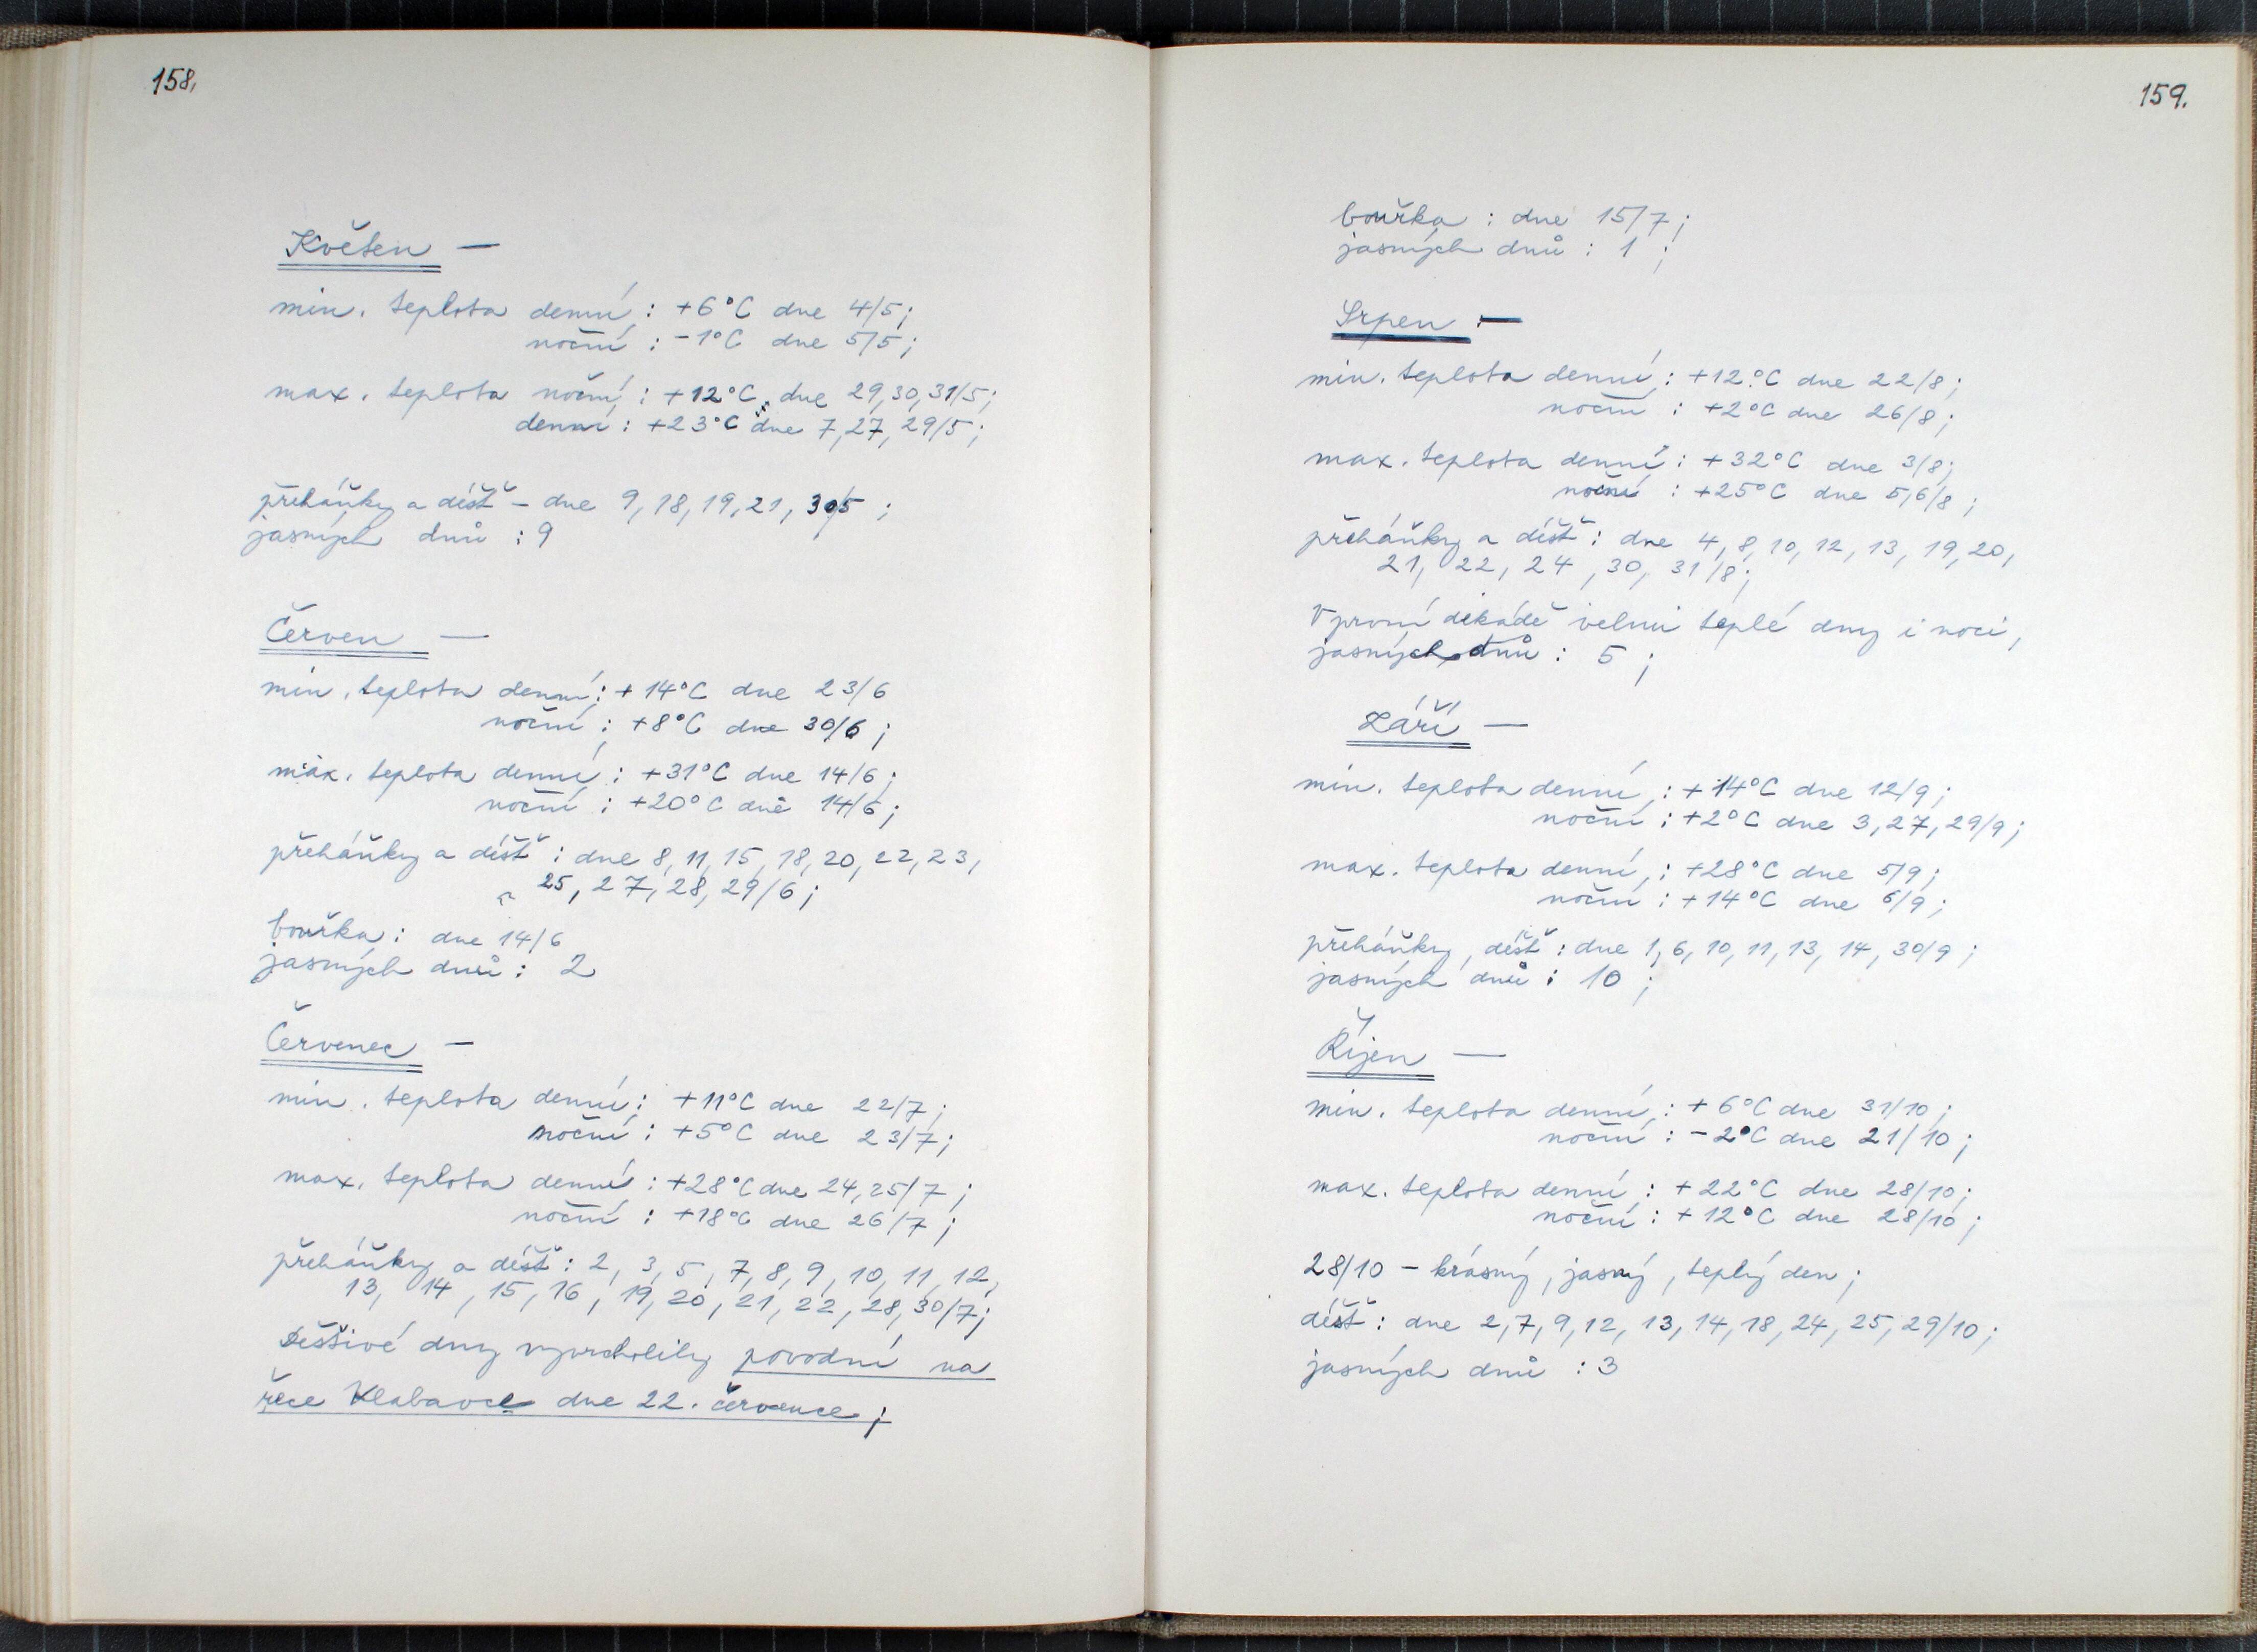 158,
Květen —
min. teplota denní : +6°C dne 4/5 ;
noční : -1°C dne 5/5 ;
max. teplota noční : +12°C dne 29, 30, 31/5 ;
denní : +23°C dne 7, 27, 29/5 ;
přeháňky a déšť - dne 9, 18, 19, 21, 30/5 ;
jasných dnů : 9
Červen —
min. teplota denní : +14°C dne 23/6
noční : +8°C dne 30/6 ;
max. teplota denní : +31°C dne 14/6 ;
noční : +20°C dne 14/6 ;
přeháňky a déšť : dne 8, 11, 15, 18, 20, 22, 23,
25, 27, 28, 29/6 ;
bouřka : dne 14/6
jasných dnů : 2
Červenec —
min. teplota denní : +11°C dne 22/7 ;
noční : +5°C dne 23/7 ;
max. teplota denní : +28°C dne 24, 25/7 ;
noční : +18°C dne 26/7 ;
přeháňky a déšť : 2, 3, 5, 7, 8, 9, 10, 11, 12,
13, 14, 15, 16, 19, 20, 21, 22, 28, 30/7 ;
Deštivé dny vyvrcholily povodní na
řece Klabavce dne 22. července ;
159.
bouřka : dne 15/7 ;
jasných dnů : 1 ;
Srpen : —
min. teplota denní : +12°C dne 22/8 ;
noční : +2°C dne 26/8 ;
max. teplota denní : +32°C dne 3/8 ;
noční : +25°C dne 5, 6/8 ;
přeháňky a déšť : dne 4, 8, 10, 12, 13, 19, 20,
21, 22, 24, 30, 31/8 ;
V první dekádě velmi teplé dny i noci,
jasných dnů : 5 ;
Září —
min. teplota denní : +14°C dne 12/9 ;
noční : +2°C dne 3, 27, 29/9 ;
max. teplota denní : +28°C dne 5/9 ;
noční : +14°C dne 6/9 ;
přeháňky, déšť : dne 1, 6, 10, 11, 13, 14, 30/9 ;
jasných dnů : 10 ;
Říjen —
min. teplota denní : +6°C dne 31/10 ;
noční : -2°C dne 21/10 ;
max. teplota denní : +22°C dne 28/10 ;
noční : +12°C dne 28/10 ;
28/10 - krásný, jasný, teplý den ;
déšť : dne 2, 7, 9, 12, 13, 14, 18, 24, 25, 29/10 ;
jasných dnů : 3